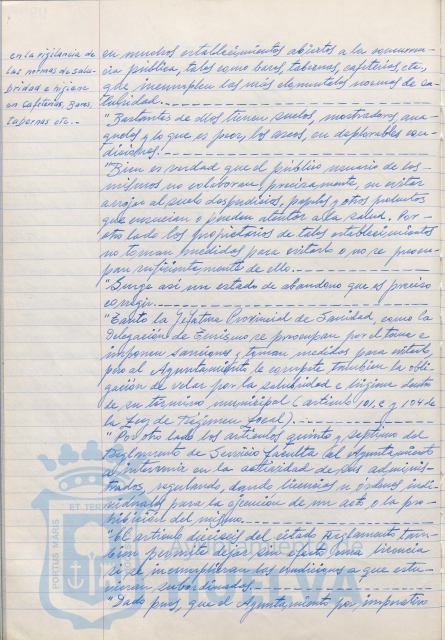 en la vigilancia de
las normas de salu-
bridad e higiene
en Cafeterías, Bares,
Tabernas etc.-
en muchos establecimientos abiertos a la concurren-
cia pública, tales como bares, tabernas, cafeterías, etc,
que incumplen las más elementales normas de sa-
lubridad.
"Bastantes de ellos tienen suelos, mostradores, ana-
queles y lo que es peor, los aseos, en deplorables con-
diciones.
"Bien es verdad que el público usuario de los
mismos no colaboran, precisamente, en evitar
arrojar al suelo desperdicios, papeles y otros productos
que ensucian o pueden atentar a la salud. Por
otro lado los propietarios de tales establecimientos
no toman medidas para evitarlo o no se preocu-
pan suficientemente de ello.
"Surge así un estado de abandono que es preciso
corregir.
"Tanto la Jefatura Provincial de Sanidad, como la
Delegación de Turismo, se preocupan por el tema e
imponen sanciones y toman medidas para evitarlo,
pero al Ayuntamiento le compete también la obli-
gación de velar por la salubridad e higiene dentro
de su término municipal (artículo 101, c y 104 de
la Ley de Régimen Local).
"Por otro lado los artículos quinto y séptimo del
Reglamento de Servicio faculta al Ayuntamiento
a intervenir en la actividad de sus adminis-
trados, regulando, dando licencias u órdenes indi-
viduales para la ejecución de un acto o la pro-
hibición del mismo.
"El artículo dieciséis del citado Reglamento tam-
bién permite dejar sin efecto una licencia
si se incumplieran las condiciones a que estu-
vieran subordinadas.
"Dado pues, que el Ayuntamiento por imperativo
PORTUS MARIS
ET TER